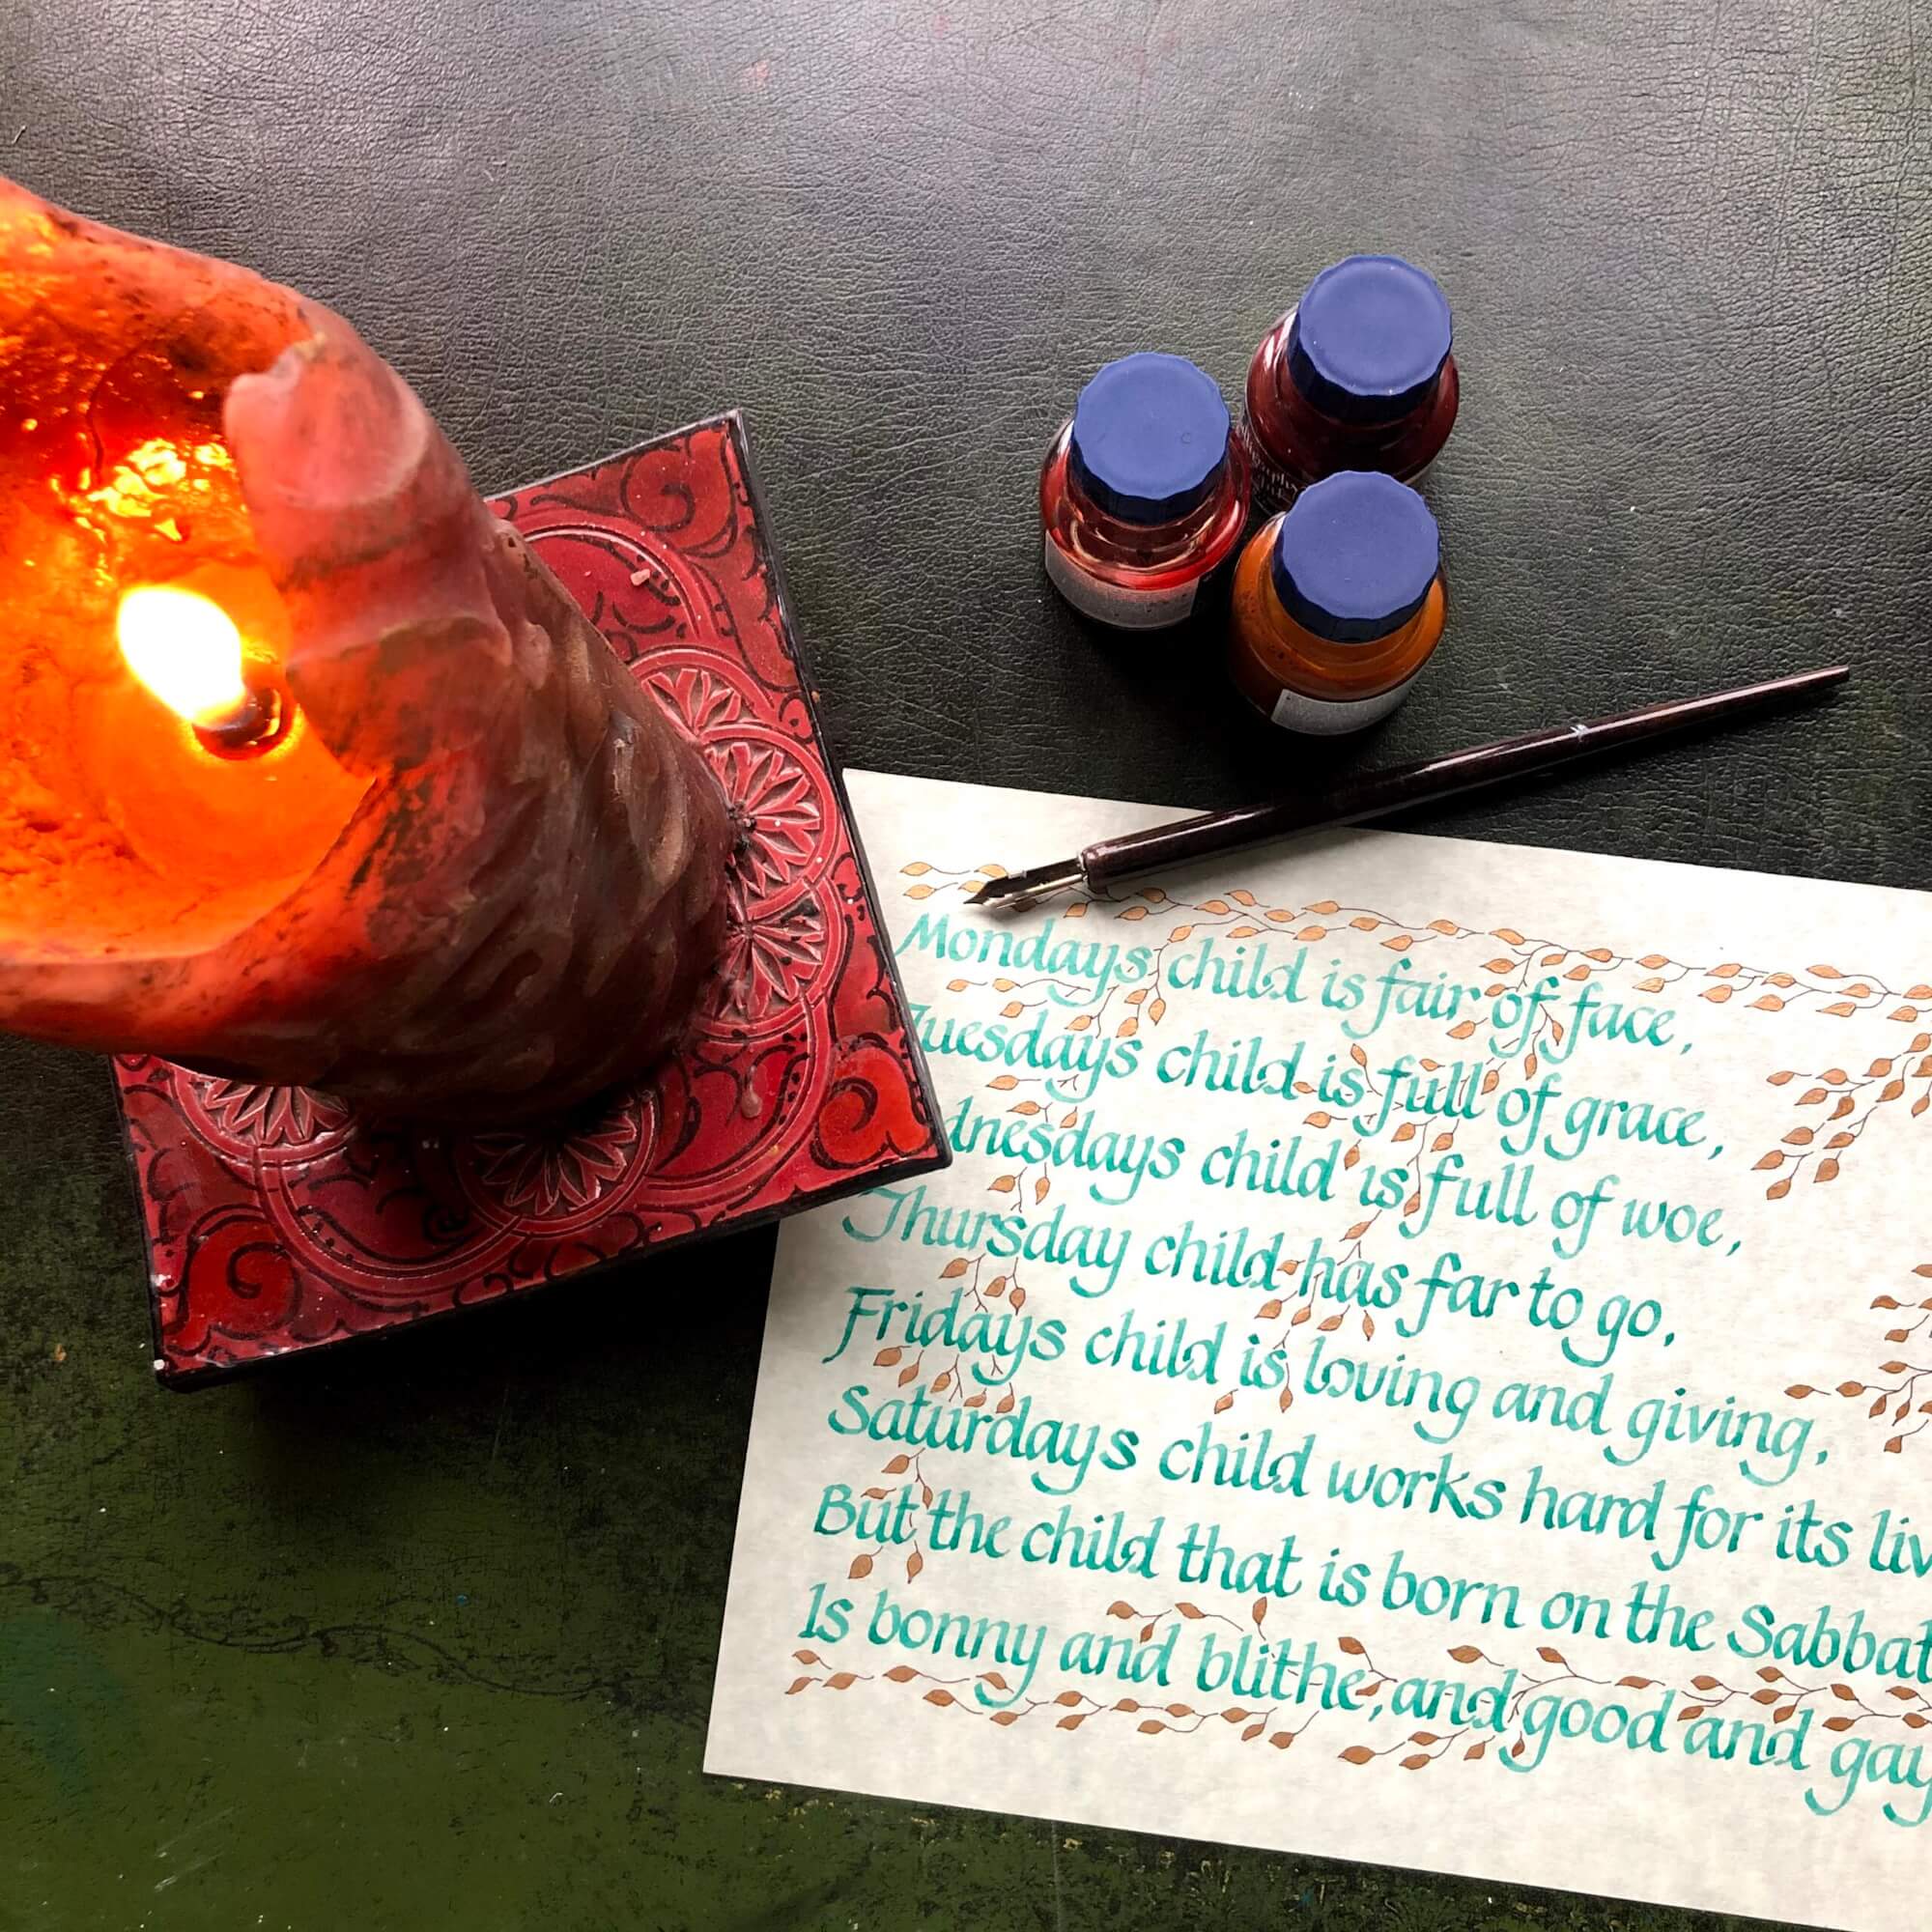 Mondays child is fair of face,
Tuesdays child is full of grace,
dnesdays child is full of woe,
Thursday child has far to go,
Fridays child is loving and giving,
Saturdays child works hard for its liv
But the child that is born on the Sabbat
Is bonny and blithe, and good and gay